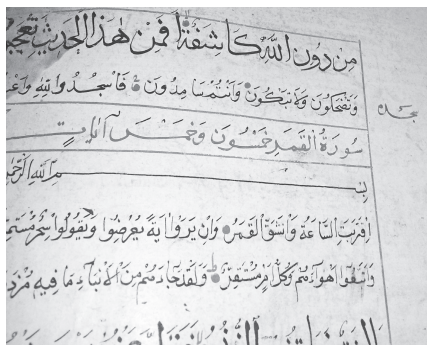 مِن دُونِ اللّٰهِ كَاشِفَةٌ اَفَمِنْ هٰذَا الْحَدِيثِ تَعْجَبُ
وَتَضْحَكُونَ وَلَا تَبْكُونَ وَاَنْتُمْ سَامِدُونَ فَاسْجُدُوا لِلّٰهِ وَاعْ
سجده
سُورَةُ الْقَمَرِ خَمْسُونَ وَخَمْسُ اٰيَاتٍ
بِسْمِ اللّٰهِ الرَّحْمٰ
اِقْتَرَبَتِ السَّاعَةُ وَانْشَقَّ الْقَمَرُ وَاِنْ يَرَوْا اٰيَةً يُعْرِضُوا وَيَقُولُوا سِحْرٌ مُسْتَمِ
وَاتَّبَعُوا اَهْوَاءَهُمْ وَكُلُّ اَمْرٍ مُسْتَقِرٌّ وَلَقَدْ جَاءَهُمْ مِنَ الْاَنْبَاءِ مَا فِيهِ مُزْدَ